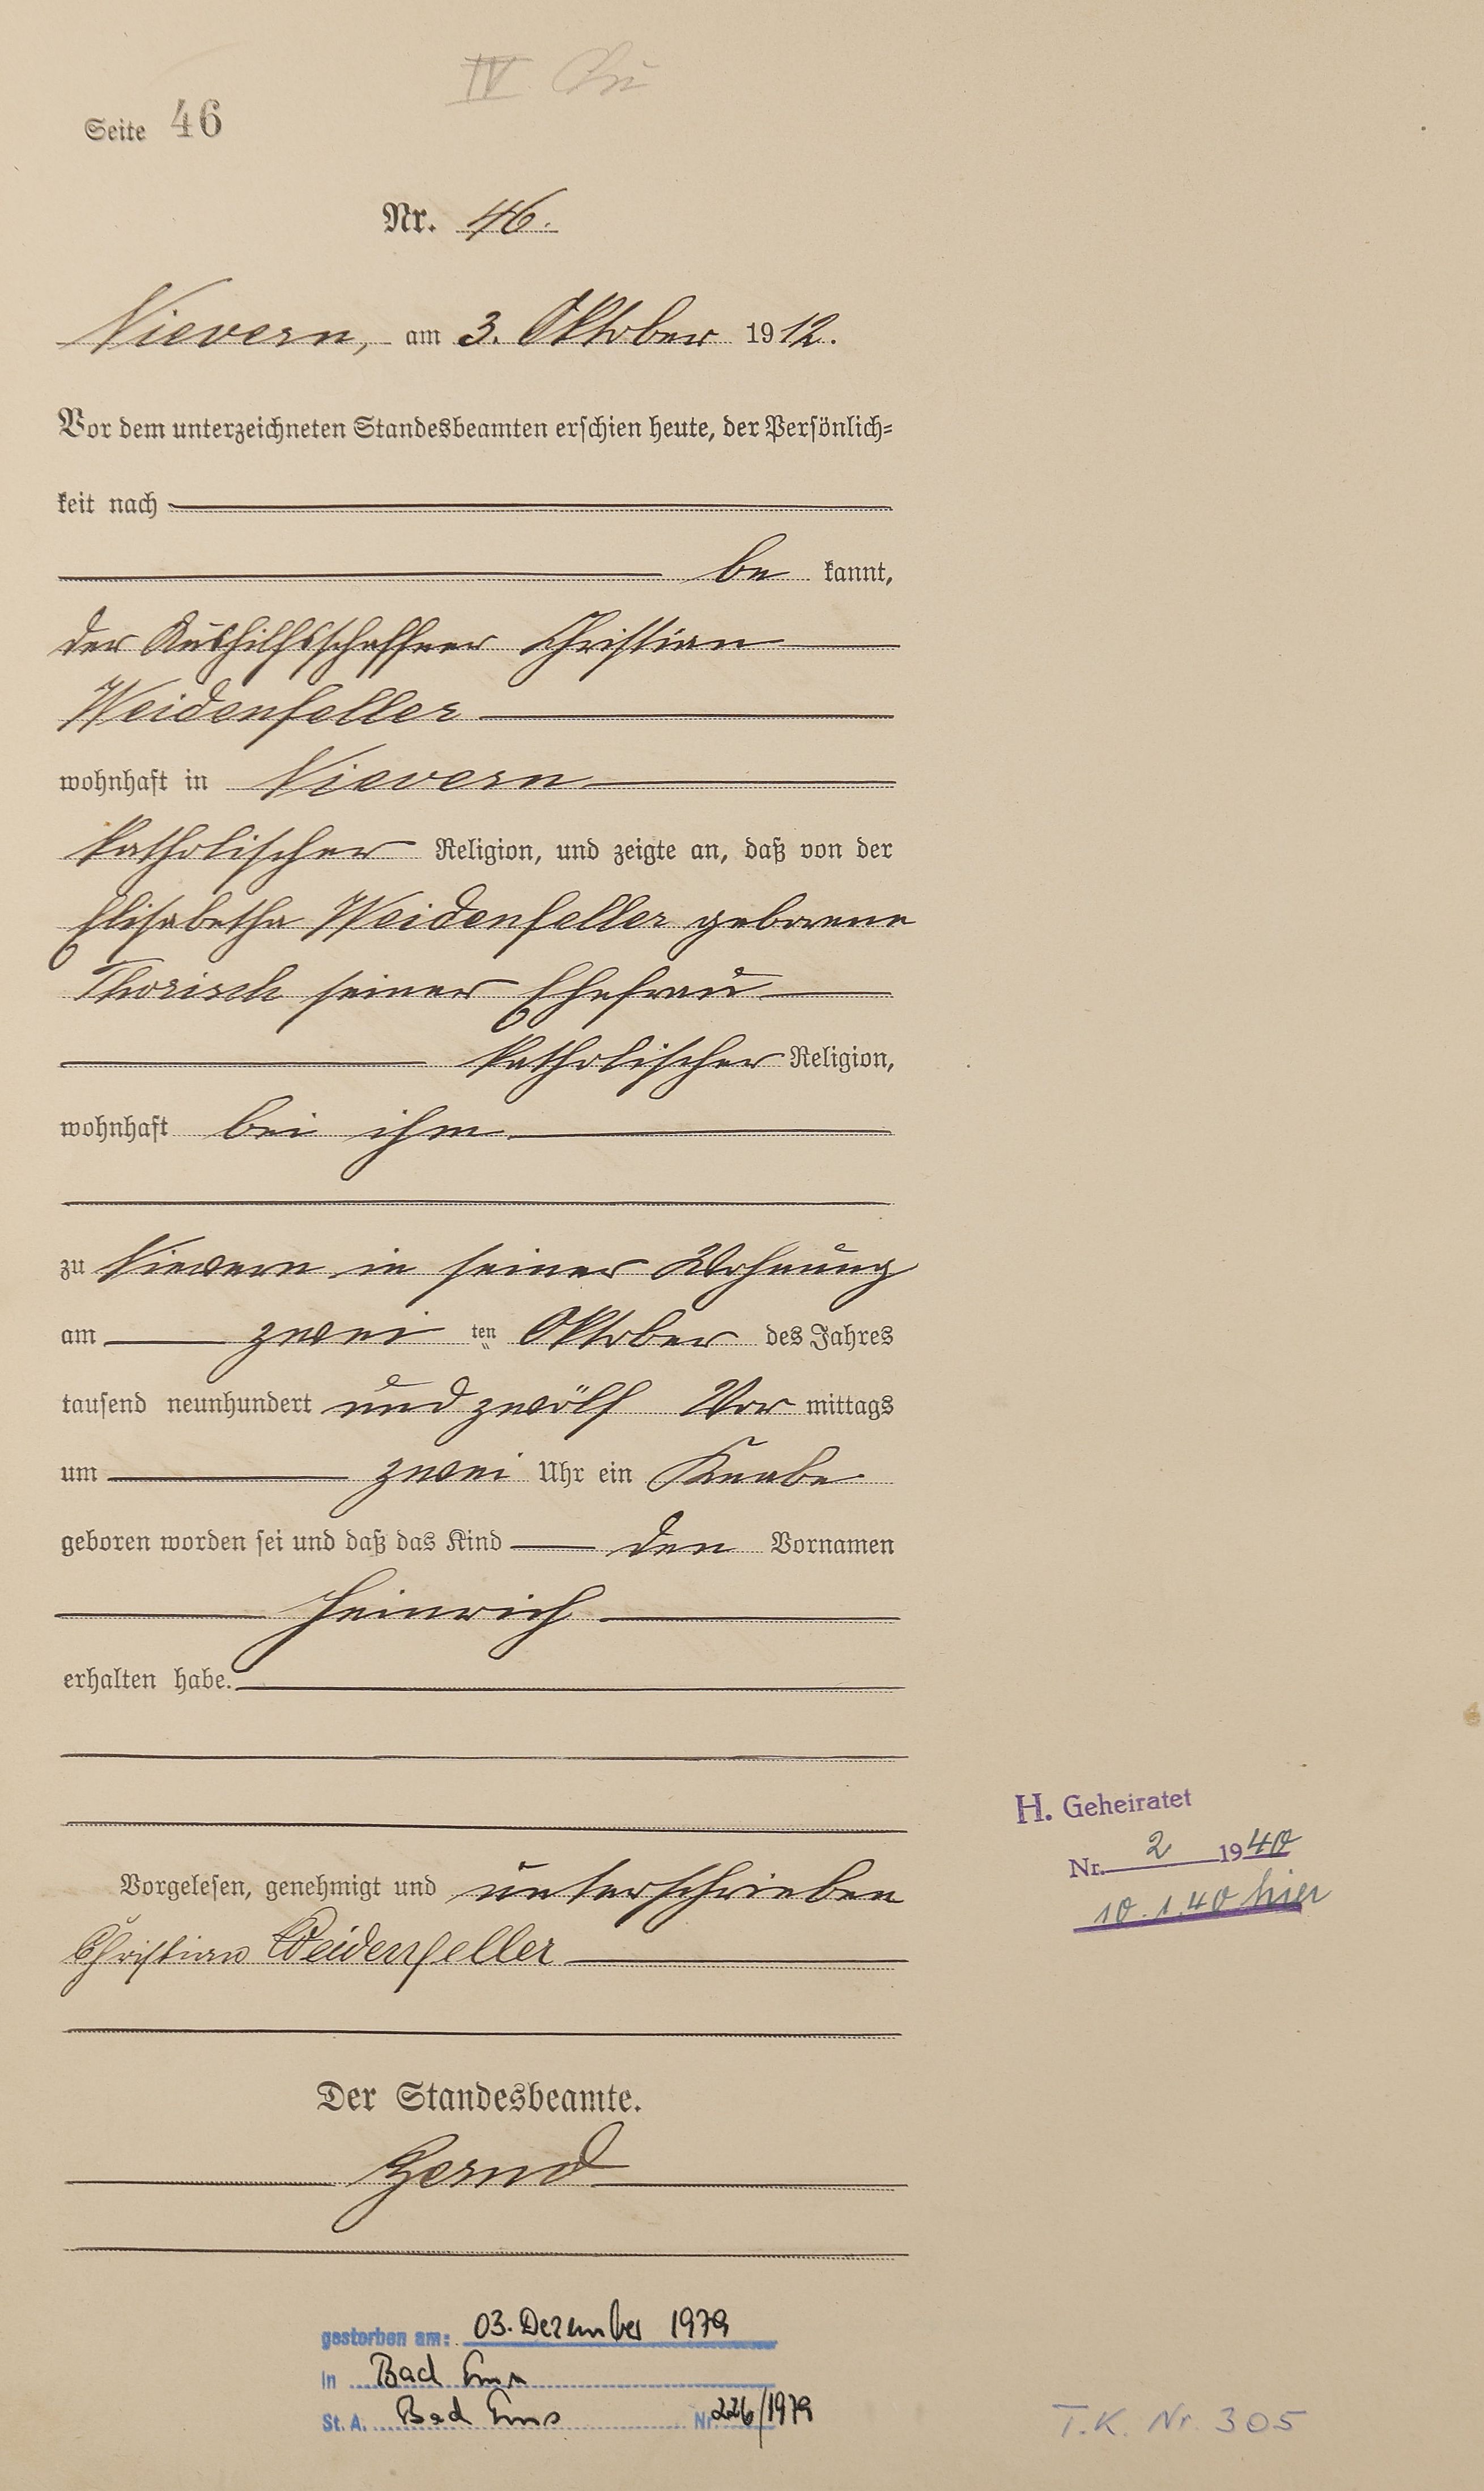 IV
Seite 46
Nr. 46.
Nievern, am 3. Oktober 1912.
Vor dem unterzeichneten Standesbeamten erschien heute, der Persönlich-
keit nach
be kannt,
der Aushilfsschaffner Christian
Weidenfeller
wohnhaft in Nievern
katholischer Religion, und zeigte an, daß von der
Elisabetha Weidenfeller geborene
Thorisch seiner Ehefrau
katholischer Religion,
wohnhaft bei ihm
zu Nievern in seiner Wohnung
am zwei ten Oktober des Jahres
tausend neunhundert und zwölf Vor mittags
um zwei Uhr ein Knabe
geboren worden sei und daß das Kind den Vornamen
Heinrich
erhalten habe.
Vorgelesen, genehmigt und unterschrieben
Christian Weidenfeller
Der Standesbeamte.
H. Geheiratet
Nr. 2 1940
10.1.40 hier
gestorben am: 03. Dezember 1979
in Bad Ems
St. A. Bad Ems Nr. 226/1979
T.K. Nr. 305